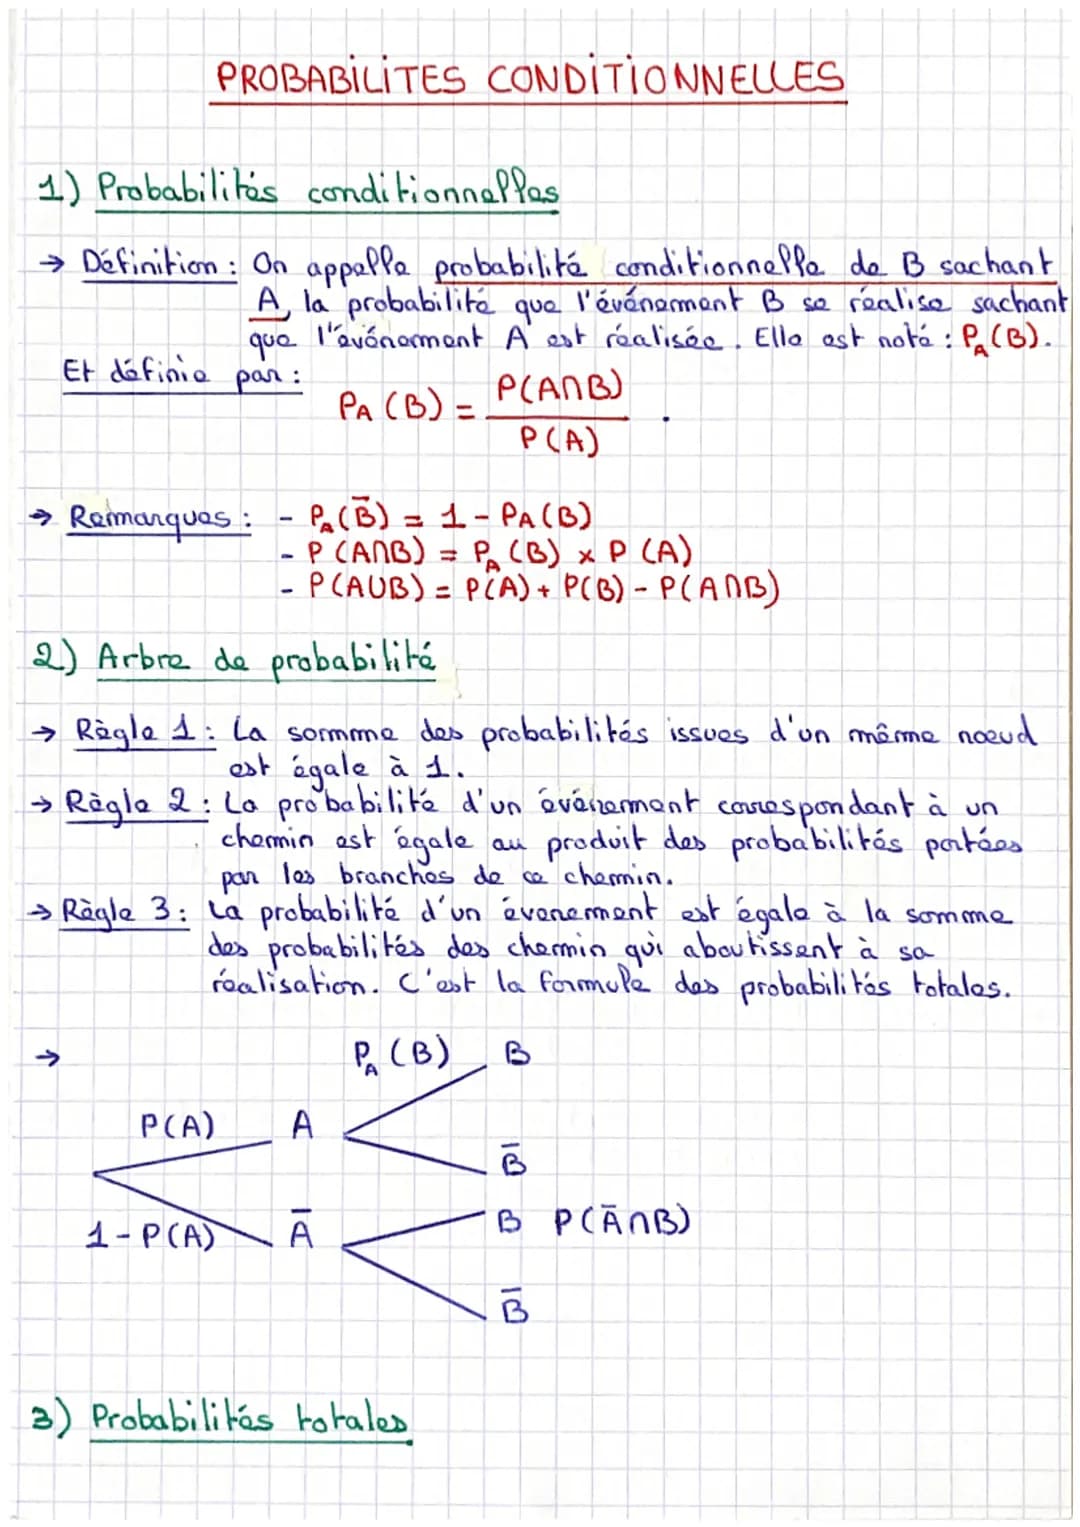 PROBABILITES CONDITIONNELLES
1) Probabilités conditionnelles
→ Définition : On appelle probabilité conditionnelle de B sachant
A, la probabilité que l'événement B se réalise sachant
que l'événement A est réalisée. Elle est noté : P_A(B).
Et définie par :
P_A(B) = P(A∩B) / P(A) .
→ Remarques : - P_A(B̄) = 1 - P_A(B)
- P(A∩B) = P_A(B) × P(A)
- P(A∪B) = P(A) + P(B) - P(A∩B)
2) Arbre de probabilité
→ Règle 1 : La somme des probabilités issues d'un même noeud
est égale à 1.
→ Règle 2 : La probabilité d'un événement correspondant à un
chemin est égale au produit des probabilités portées
par les branches de ce chemin.
→ Règle 3 : La probabilité d'un évenement est égale à la somme
des probabilités des chemin qui aboutissent à sa
réalisation. C'est la formule des probabilités totales.
→ P_A(B) B
P(A) A
B̄
B P(Ā∩B)
1-P(A) Ā
B̄
3) Probabilités totales